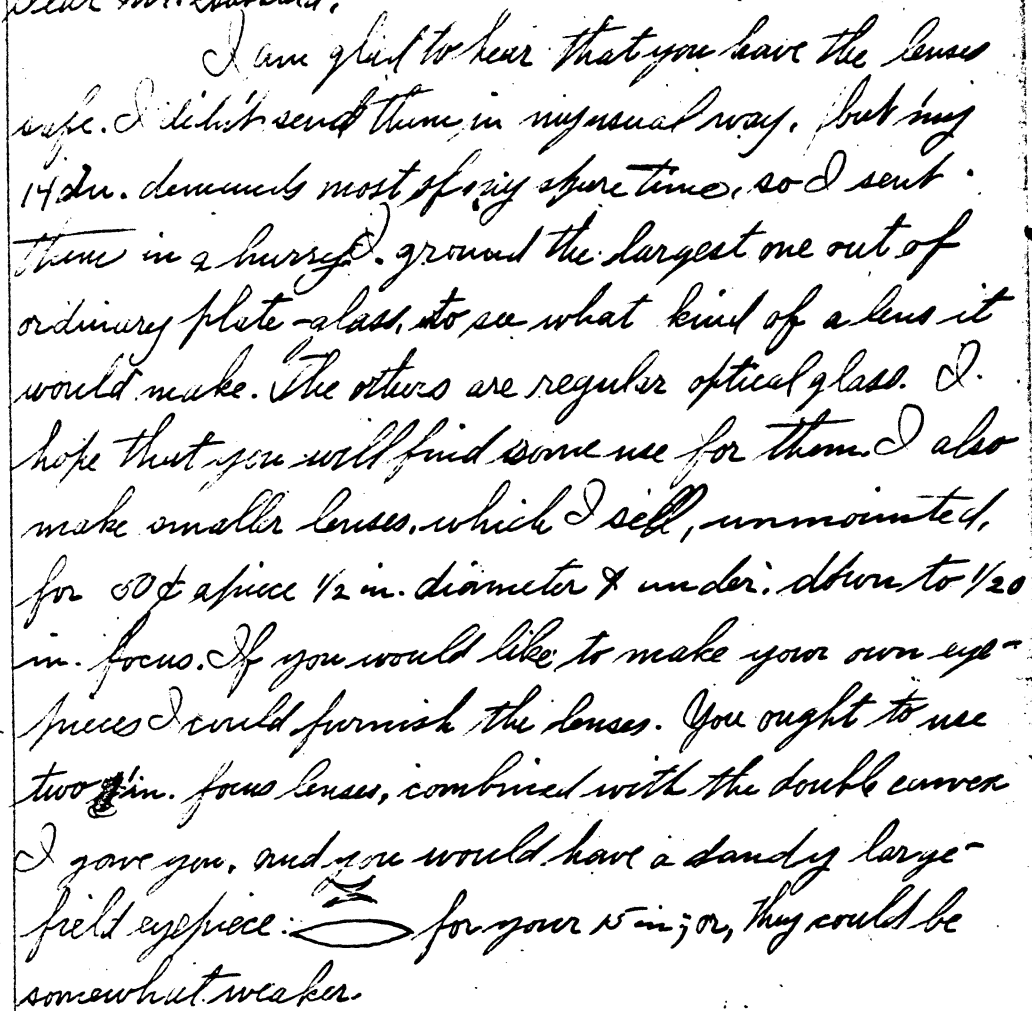 Dear Mr.
I am glad to hear that you have the lenses
safe. I didn't send them in my usual way, but my
14 in. demands most of my spare time, so I sent
them in a hurry. I ground the largest one out of
ordinary plate-glass, to see what kind of a lens it
would make. The others are regular optical glass. I
hope that you will find some use for them. I also
make smaller lenses, which I sell, unmounted,
for 50¢ apiece 1/2 in. diameter & under, down to 1/20
in. focus. If you would like to make your own eye-
pieces I could furnish the lenses. You ought to use
two in. focus lenses, combined with the double convex
I gave you, and you would have a dandy large-
field eyepiece: for your 15 in; or, they could be
somewhat weaker.